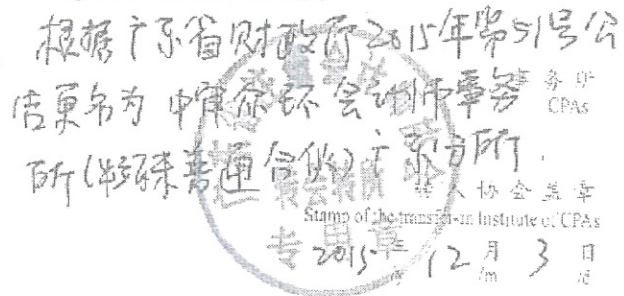 根据广东省财政厅2015年第51号公
告更名为 中审众环会计师事务
所(特殊普通合伙)广东分所.
事务所
CPAs
转入协会盖章
Stamp of the transfer-in Institute of CPAs
专用章
2015年 12月 3日
/y /m /d